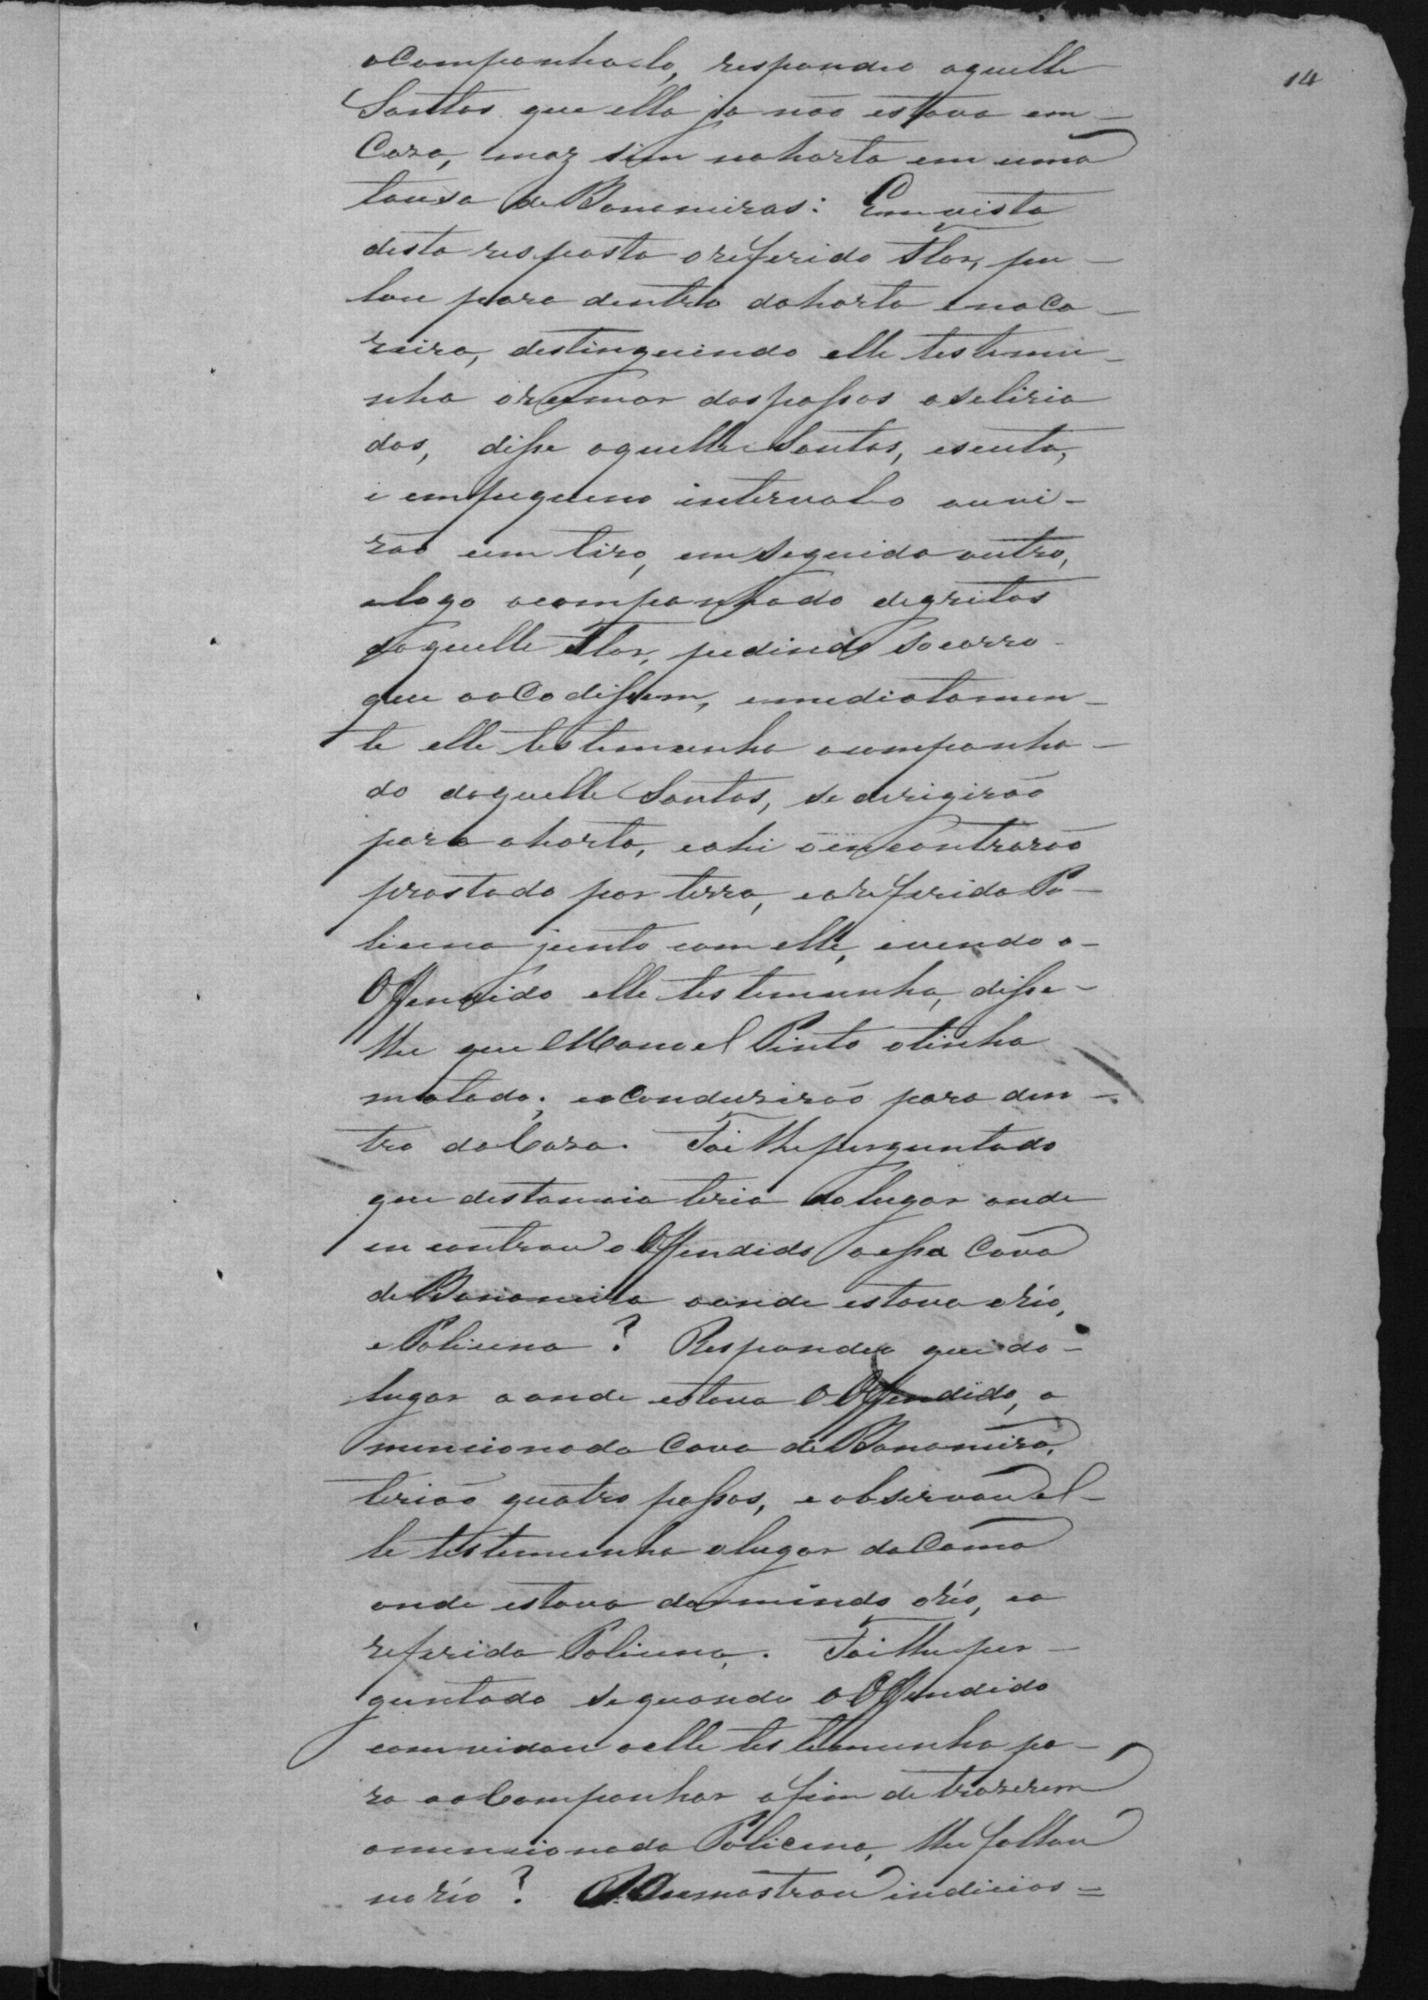 14
acompanhalo, respondeo aquelle
Santos que ella ja não estava em
Casa, maz sim nahorta em uma
touxa de Bananeiras: Em vista
desta resposta oreferido Flor, pu-
lou para dentro dahorta enaca-
reira, destinguindo elle testemu-
nha orumor dospassos
dos, disse aquelle Santos, escuta,
e empequeno intervalo ouvi-
rão um tiro, emseguida outro,
elogo acompanhado degritos
daquelle Flor, pedindo Socorro
que oacodissem, emediatamen-
te elle testemunha acompanha-
do daquelle Santos, se derigirão
para ahorta, eahi oencontrarão
prostado por terra, eareferida Po-
licena junto com elle, evendo o-
Offendido elle testemunha, disse-
lhe que Manoel Pinto otinha
matado; eoConduzirão para den-
tro daCasa. Foi lhe perguntado
que destancia teria do lugar onde
encontrou oOffendido aessa Cova
deBananeira aonde estava oréo,
ePolicena? Respondeo que do-
lugar aonde estava oOffendido, a
mencionada Cova deBananeira,
terião quatro passos, eobservou el-
le testemunha olugar daCama
onde estava dormindo oréo, ea
referida Policena. Foi lhe per-
guntado sequando oOffendido
convidou aelle testemunha pa-
ra oaCompanhar afim de trazerem
amencionada Policena, lhe fallou
noréo? Ou mostrou indicios=